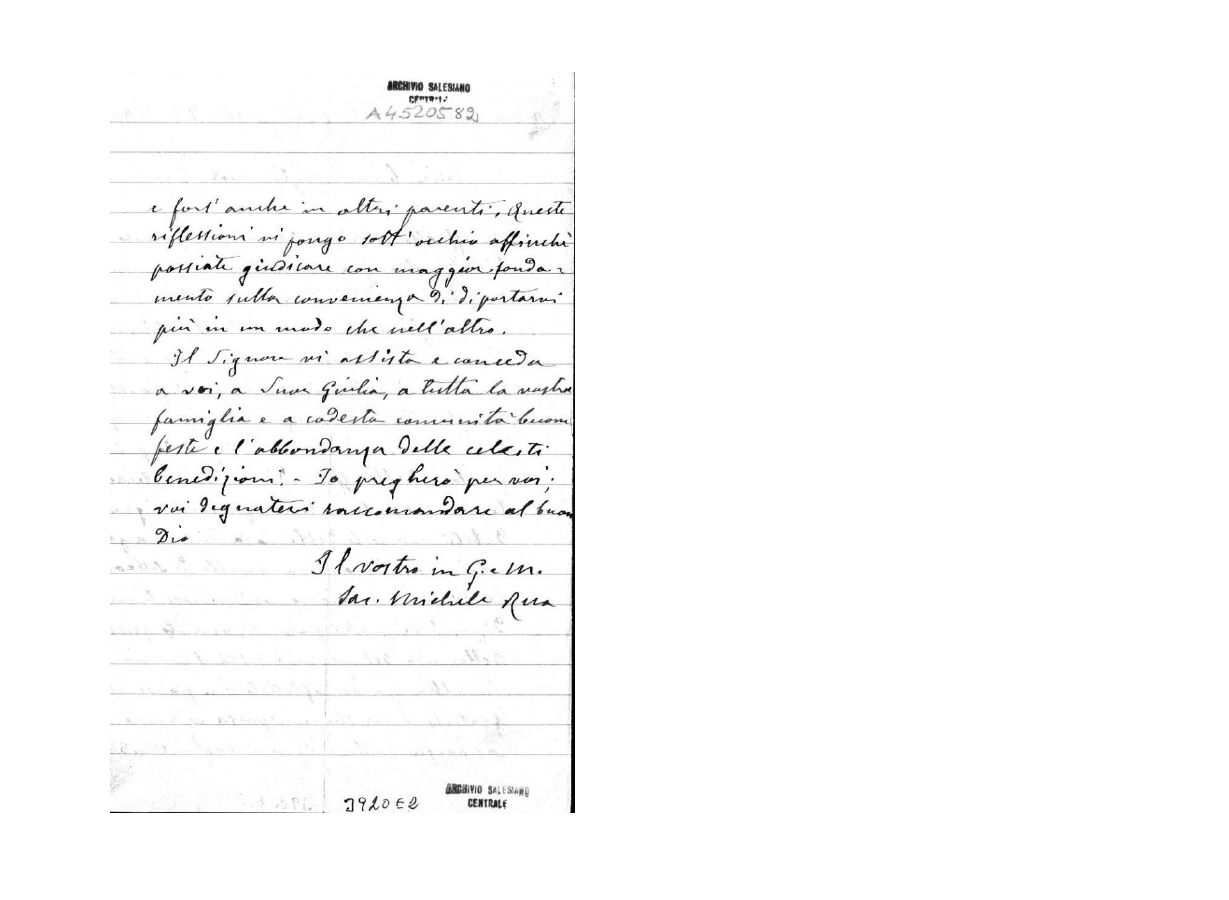 ARCHIVIO SALESIANO
CENTRALE
A4520582
e fors' anche in altri parenti. Queste
riflessioni vi pongo sott'occhio affinchè
possiate giudicare con maggior fonda=
mento sulla convenienza di diportarvi
più in un modo che nell'altro.
Il Signore vi assista e conceda
a voi, a Suor Giulia, a tutta la vostra
famiglia e a codesta comunità buone
feste e l'abbondanza delle celesti
benedizioni. - Io pregherò per voi;
voi degnatevi raccomandare al buon
Dio
Il vostro in G. e M.
Sac. Michele Rua
3920E2
ARCHIVIO SALESIANO
CENTRALE